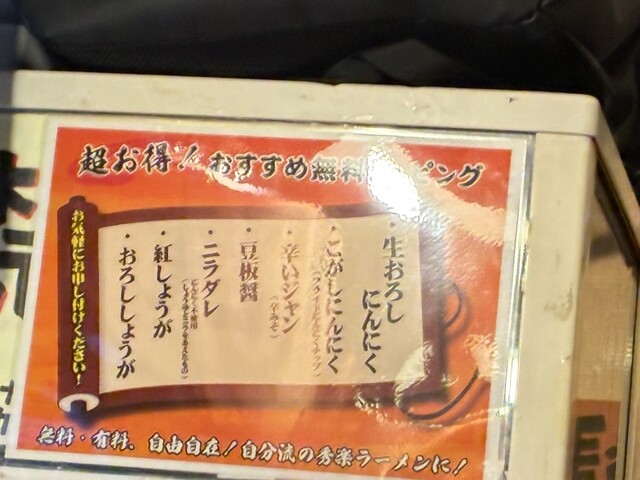 超お得！おすすめ無料トッピング
・生おろしにんにく
・こがしにんにく
（フライドにんにくチップ）
・辛いジャン
（辛みそ）
・豆板醤
・ニラダレ
・紅しょうが
・おろししょうが
お気軽にお申し付けください！
無料・有料、自由自在！自分流の秀楽ラーメンに！